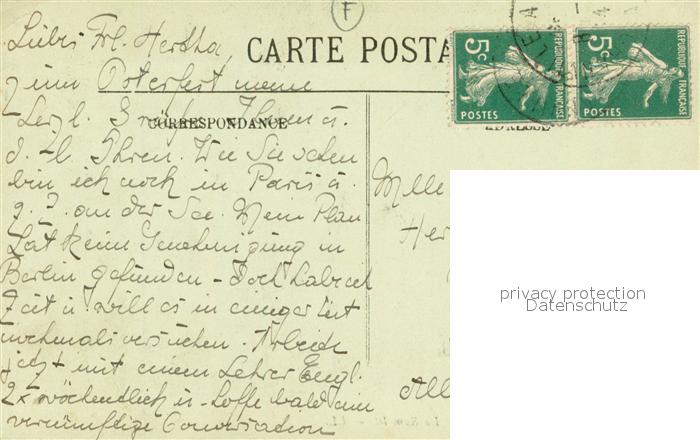 Liebes Frl. Hertha,
CARTE POSTA
zum Osterfest meine
herzl. Grüße Ihnen u.
CORRESPONDANCE
d. lb. Ihren. Wie Sie sehen
bin ich noch in Paris u.
z. Z. an der See. Mein Plan
hat keine Genehmigung in
Berlin gefunden - Doch habe ich
Zeit u. will es in einiger Zeit
nochmals versuchen. Arbeite
jetzt mit einem Lehrer Engl.
2x wöchentlich u. hoffe bald eine
vernünftige Conversation
5c
POSTES
REPUBLIQUE FRANÇAISE
5c
POSTES
REPUBLIQUE FRANÇAISE
ADRESSE
Melle
Her
All
F
privacy protection
Datenschutz